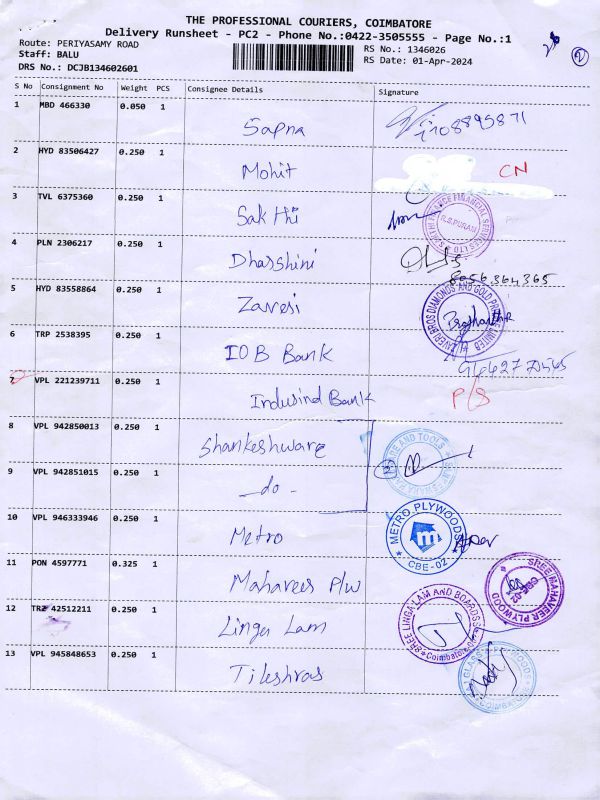 THE PROFESSIONAL COURIERS, COIMBATORE
Delivery Runsheet - PC2 - Phone No.:0422-3505555 - Page No.:1
Route: PERIYASAMY ROAD
Staff: BALU
DRS No.: DCJB134602601
RS No.: 1346026
RS Date: 01-Apr-2024
2
S No Consignment No Weight PCS Consignee Details Signature
1 MBD 466330 0.050 1 Sapna
2 HYD 83506427 0.250 1 Mohit CN
3 TVL 6375360 0.250 1 Sakthi R.S.PURAM
4 PLN 2306217 0.250 1 Dharshini 8056364365
5 HYD 83558864 0.250 1 Zaveri ZAVERI BROS DIAMONDS AND GOLD PRIVATE LIMITED
6 TRP 2538395 0.250 1 IOB Bank
7 VPL 221239711 0.250 1 Indusind Bank P/S
8 VPL 942850013 0.250 1 Shankeshware
9 VPL 942851015 0.250 1 -do-
10 VPL 946333946 0.250 1 Metro METRO PLYWOODS CBE-02
11 PON 4597771 0.325 1 Mahaveer P/w SREE MAHAVEER PLYWOOD
12 TRZ 42512211 0.250 1 Linga Lam SREE LINGA LAM AND BOARDS Coimbatore
13 VPL 945848653 0.250 1 COIMBATORE